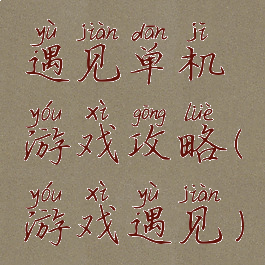 yù jiàn dān jī
遇见单机
yóu xì gōng lüè
游戏攻略(
yóu xì yù jiàn
游戏遇见)